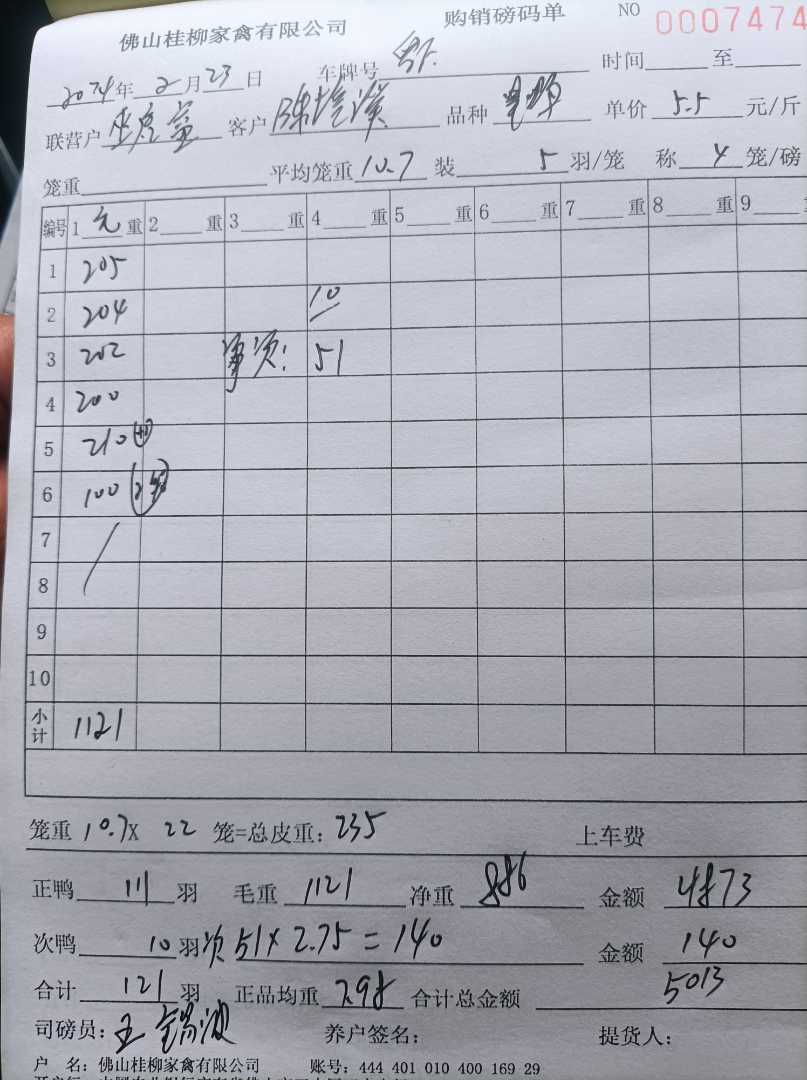 佛山桂柳家禽有限公司 购销磅码单 NO 0007474
2024年2月23日 车牌号 时间 至
联营户 客户 品种 单价 5.5 元/斤
笼重 平均笼重 10.7 装 5 羽/笼 称 4 笼/磅
编号 1 重 2 重 3 重 4 重 5 重 6 重 7 重 8 重 9
1 205
2 204 10
3 202 事项: 51
4 200
5 210
6 100
7
8
9
10
小计 1121
笼重 10.7X 22 笼=总皮重: 235 上车费
正鸭 111 羽 毛重 1121 净重 886 金额 4873
次鸭 10 羽 次 51X2.75=140 金额 140
合计 121 羽 正品均重 7.98 合计总金额 5013
司磅员: 王锡波 养户签名: 提货人:
户 名: 佛山桂柳家禽有限公司 账号: 444 401 010 400 169 29